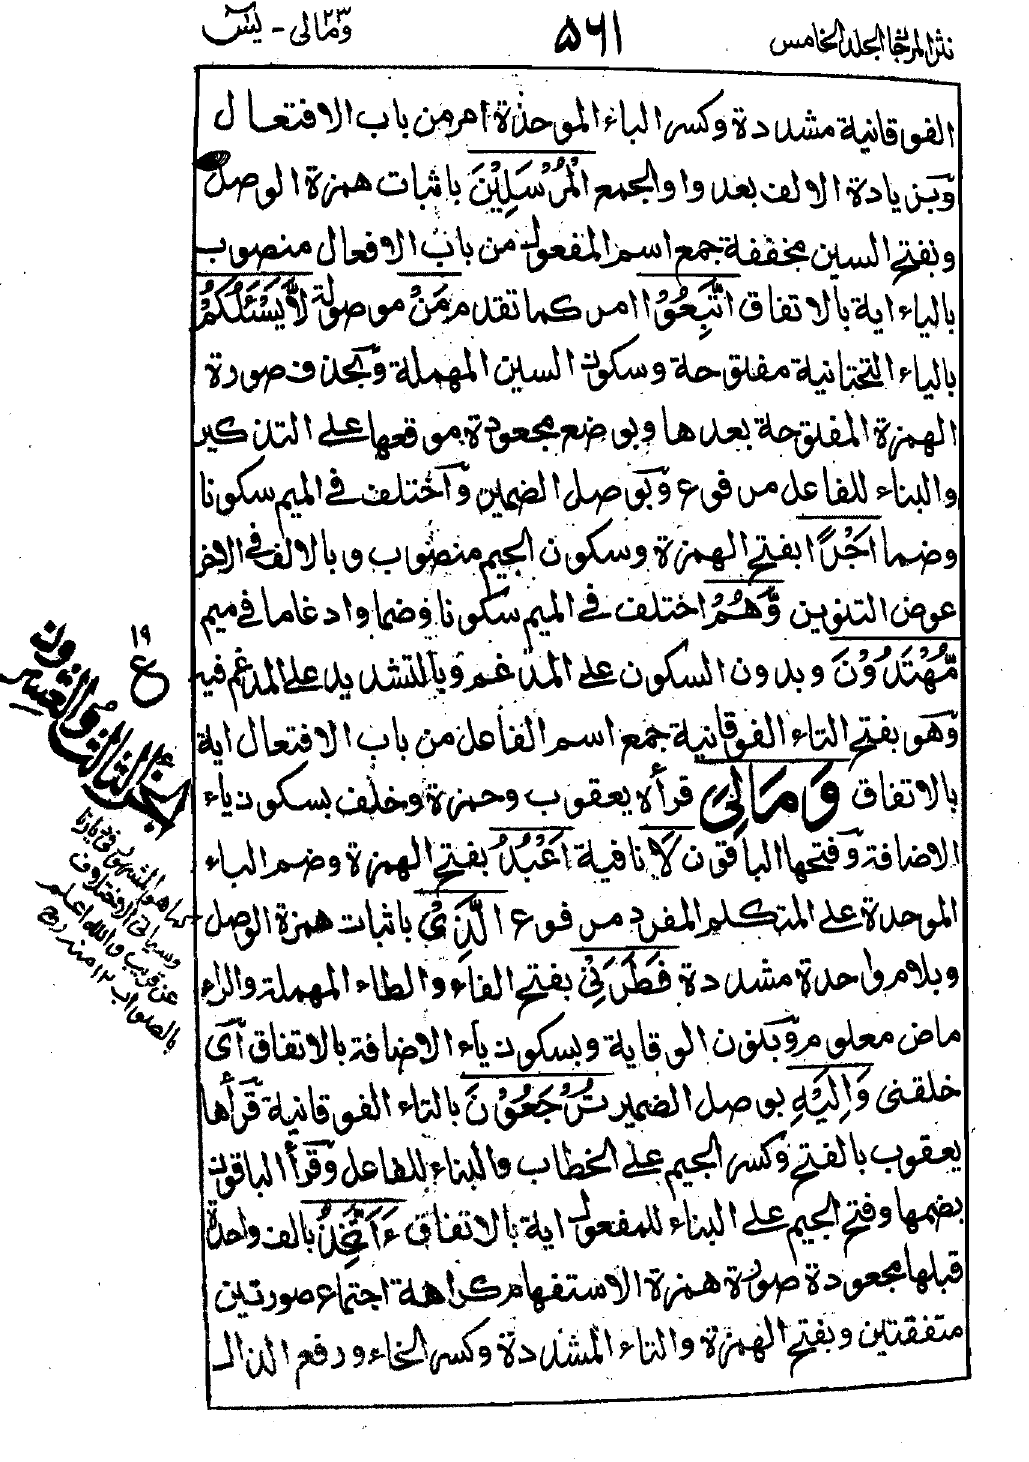 نثر المرجان المجلد الخامس ۵۶۱ ومالی ۲۳ - یٰسٓ
الفوقانية مشددة وكسر الباء الموحدة امر من باب الافتعال
وبزيادة الالف بعد واو الجمع الْمُرْسَلِيْنَ باثبات همزة الوصل
وبفتح السين مخففة جمع اسم المفعول من باب الافعال منصوب
بالياء اية بالاتفاق اتَّبِعُوْا امر كما تقدم مَنْ موصولة لَّا يَسْئَلُكُمْ
بالياء التحتانية مفتوحة وسكون السين المهملة وبحذف صورة
الهمزة المفتوحة بعدها وبوضع مجعودة موقعها على التذكير
والبناء للفاعل مرفوع وبوصل الضمير واختلف في الميم سكونا
وضما اَجْرًا بفتح الهمزة وسكون الجيم منصوب وبالالف في الاخر
عوض التنوين وَّهُمْ اختلف في الميم سكونا وضما وادغاما في ميم
مُّهْتَدُوْنَ وبدون السكون على المدغم وبالتشديد على المدغم فيه
وهو بفتح التاء الفوقانية جمع اسم الفاعل من باب الافتعال اية
بالاتفاق وَمَا لِيَ قرأه يعقوب وحمزة وخلف بسكون ياء
الاضافة وفتحها الباقون لَا نافية اَعْبُدُ بفتح الهمزة وضم الباء
الموحدة على المتكلم المفرد مرفوع الَّذِيْ باثبات همزة الوصل
وبلام واحدة مشددة فَطَرَنِيْ بفتح الفاء والطاء المهملة والراء
ماض معلوم وبنون الوقاية وبسكون ياء الاضافة بالاتفاق اى
خلقنى وَاِلَيْهِ بوصل الضمير تُرْجَعُوْنَ بالتاء الفوقانية قرأها
يعقوب بالفتح وكسر الجيم على الخطاب والبناء للفاعل وقرأ الباقون
بضمها وفتح الجيم على البناء للمفعول اية بالاتفاق ءَاَتَّخِذُ بالف واحدة
قبلها مجعودة صورة همزة الاستفهام كراهة اجتماع صورتين
متفقتين وبفتح الهمزة والتاء المشددة وكسر الخاء ورفع الذال
۱۹
ع
الجزء الثالث والعشرون
هو المشهور في ديارنا
وسياتى الاختلاف
عن قريب والله اعلم
بالصواب ۱۲ منه رح